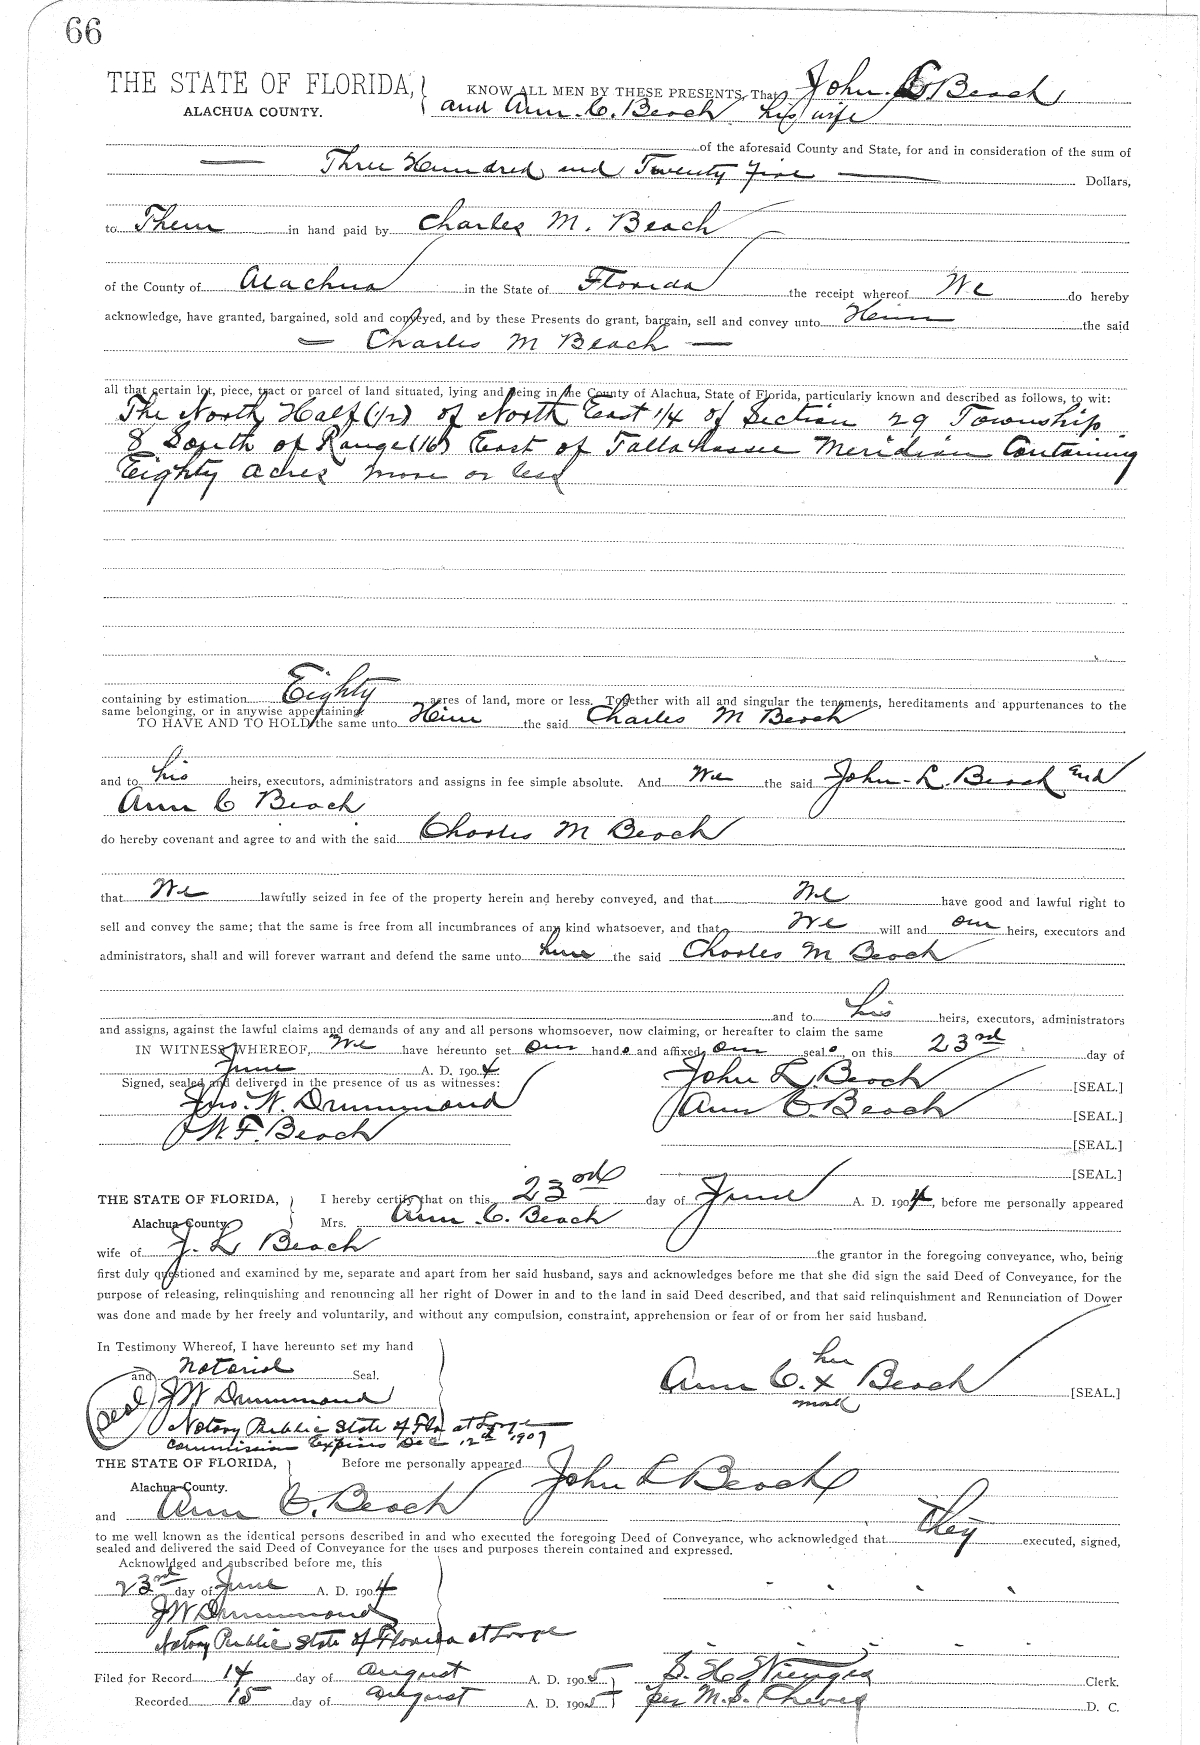 66
THE STATE OF FLORIDA, KNOW ALL MEN BY THESE PRESENTS, That John L Beach
ALACHUA COUNTY. and Ann. C. Beach his wife
of the aforesaid County and State, for and in consideration of the sum of
— Three Hundred and Twenty Five — Dollars,
to Them in hand paid by Charles M. Beach
of the County of Alachua in the State of Florida the receipt whereof We do hereby
acknowledge, have granted, bargained, sold and conveyed, and by these Presents do grant, bargain, sell and convey unto Him the said
— Charles M Beach —
all that certain lot, piece, tract or parcel of land situated, lying and being in the County of Alachua, State of Florida, particularly known and described as follows, to wit:
The North Half (1/2) of North East 1/4 of Section 29 Township
8 South of Range (16) East of Tallahassee Meridian Containing
Eighty acres more or less
containing by estimation Eighty acres of land, more or less. Together with all and singular the tenements, hereditaments and appurtenances to the
same belonging, or in anywise appertaining.
TO HAVE AND TO HOLD the same unto Him the said Charles M Beach
and to his heirs, executors, administrators and assigns in fee simple absolute. And We the said John L. Beach and
Ann C Beach
do hereby covenant and agree to and with the said Charles M Beach
that We lawfully seized in fee of the property herein and hereby conveyed, and that We have good and lawful right to
sell and convey the same; that the same is free from all incumbrances of any kind whatsoever, and that We will and our heirs, executors and
administrators, shall and will forever warrant and defend the same unto him the said Charles M Beach
and to his heirs, executors, administrators
and assigns, against the lawful claims and demands of any and all persons whomsoever, now claiming, or hereafter to claim the same
IN WITNESS WHEREOF, We have hereunto set our hands and affixed our seals, on this 23rd day of
June A. D. 1904
Signed, sealed and delivered in the presence of us as witnesses: John L. Beach [SEAL.]
Jno. W. Drummond Ann C. Beach [SEAL.]
W. F. Beach [SEAL.]
[SEAL.]
THE STATE OF FLORIDA, I hereby certify that on this 23rd day of June A. D. 1904, before me personally appeared
Alachua County Mrs. Ann C. Beach
wife of J. L Beach the grantor in the foregoing conveyance, who, being
first duly questioned and examined by me, separate and apart from her said husband, says and acknowledges before me that she did sign the said Deed of Conveyance, for the
purpose of releasing, relinquishing and renouncing all her right of Dower in and to the land in said Deed described, and that said relinquishment and Renunciation of Dower
was done and made by her freely and voluntarily, and without any compulsion, constraint, apprehension or fear of or from her said husband.
In Testimony Whereof, I have hereunto set my hand
and Notarial Seal. her
(Seal) JW Drummond Ann C. x Beach [SEAL.]
mark
Notary Public State of Fla at Large
Commission Expires Dec 12th 1907
THE STATE OF FLORIDA, Before me personally appeared John L Beach
Alachua County.
and Ann C. Beach
to me well known as the identical persons described in and who executed the foregoing Deed of Conveyance, who acknowledged that they executed, signed,
sealed and delivered the said Deed of Conveyance for the uses and purposes therein contained and expressed.
Acknowldged and subscribed before me, this
23rd day of June A. D. 1904
JW Drummond
Notary Public State of Florida at Large
Filed for Record 14 day of August A. D. 1905 S. H. Wienges Clerk.
Recorded 15 day of August A. D. 1905 per M. S. Cheves D. C.